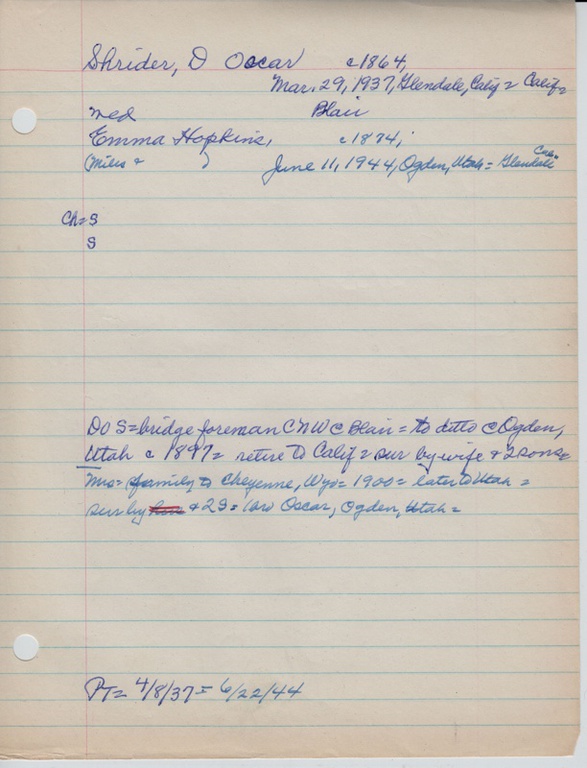 Shrider, D Oscar c1864,
Mar. 29, 1937, Glendale, Calif = Calif =
med Blair
Emma Hopkins, c1874,
(Miles & ) June 11, 1944, Ogden, Utah = Glendale Cal"
Ch = S
S
DOS = bridge foreman CNW @ Blair = to ditto @ Ogden,
Utah c 1897 = retire to Calif = sur by wife & 2 sons =
Mrs = family to Cheyenne, Wyo = 1900 = later to Utah =
sur by & 2S = Oscar, Ogden, Utah =
PT = 4/8/37 = 6/22/44